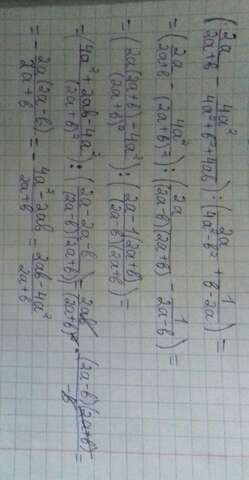 (2a/(2a+b) - 4a²/(4a²+b²+4ab)) : (2a/(4a²-b²) + 1/(b-2a)) =
= (2a/(2a+b) - 4a²/(2a+b)²) : (2a/((2a-b)(2a+b)) - 1/(2a-b)) =
= ((2a(2a+b)-4a²)/(2a+b)²) : ((2a-1(2a+b))/((2a-b)(2a+b))) =
= ((4a²+2ab-4a²)/(2a+b)²) : ((2a-2a-b)/((2a-b)(2a+b))) = 2ab/(2a+b)² · ((2a-b)(2a+b))/(-b) =
= - (2a(2a-b))/(2a+b) = - (4a²-2ab)/(2a+b) = (2ab-4a²)/(2a+b)